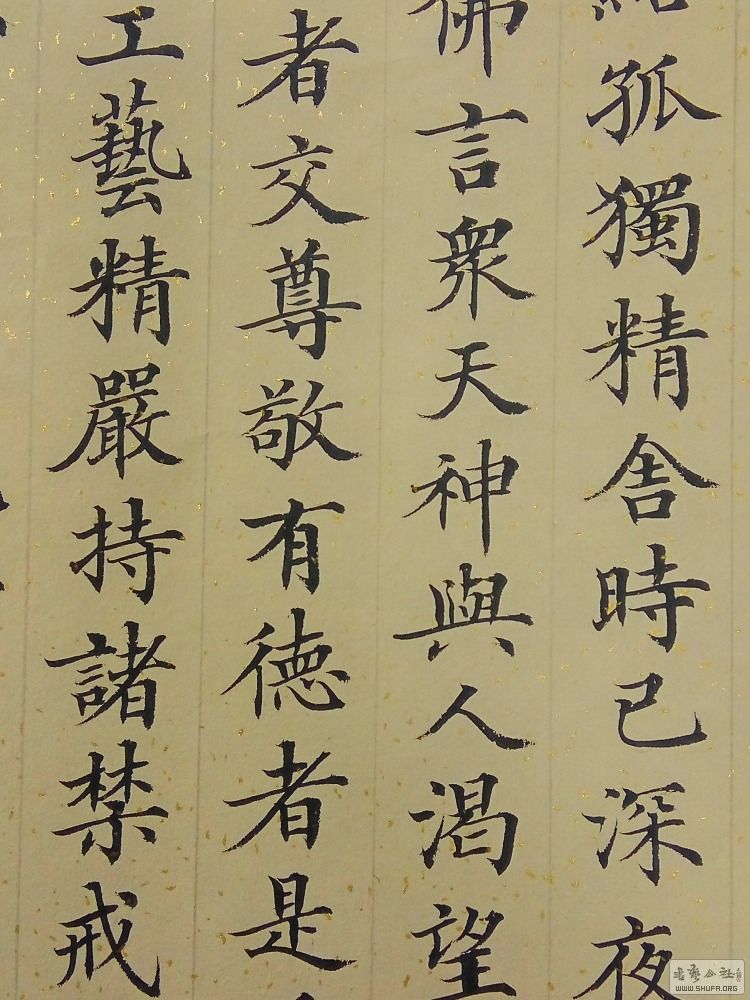 孤獨精舍時已深夜
佛言眾天神與人渴望
者交尊敬有德者是
工藝精嚴持諸禁戒
书艺公社
WWW.SHUFA.ORG